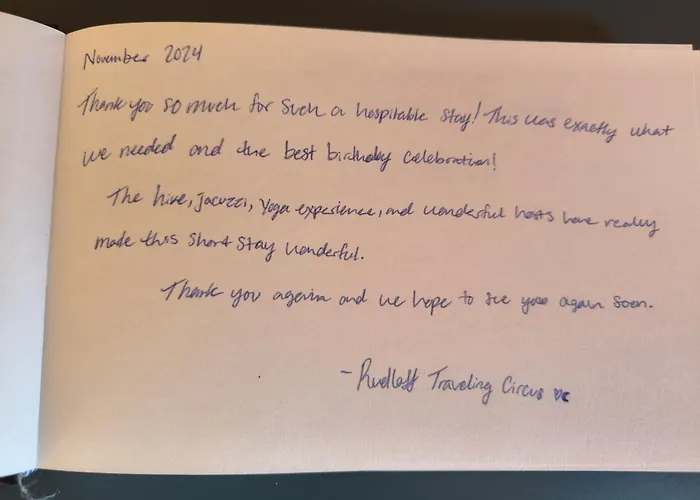 November 2024
Thank you so much for such a hospitable stay! This was exactly what
we needed and the best birthday celebration!
The hive, jacuzzi, yoga experience, and wonderful hosts have really
made this short stay wonderful.
Thank you again and we hope to see you again soon.
- Traveling Circus